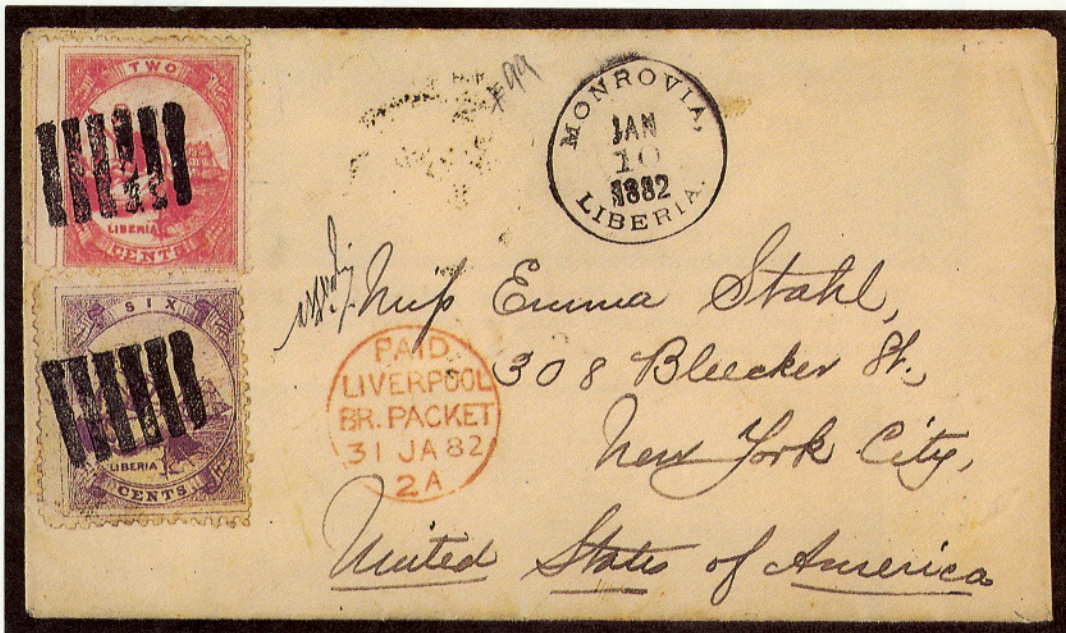 TWO
LIBERIA
CENTS
SIX
LIBERIA
CENTS
#99
MONROVIA,
JAN
10
1882
LIBERIA.
Miss Emma Stahl,
308 Bleecker St.,
New York City,
United States of America
PAID
LIVERPOOL
BR. PACKET
31 JA 82
2A